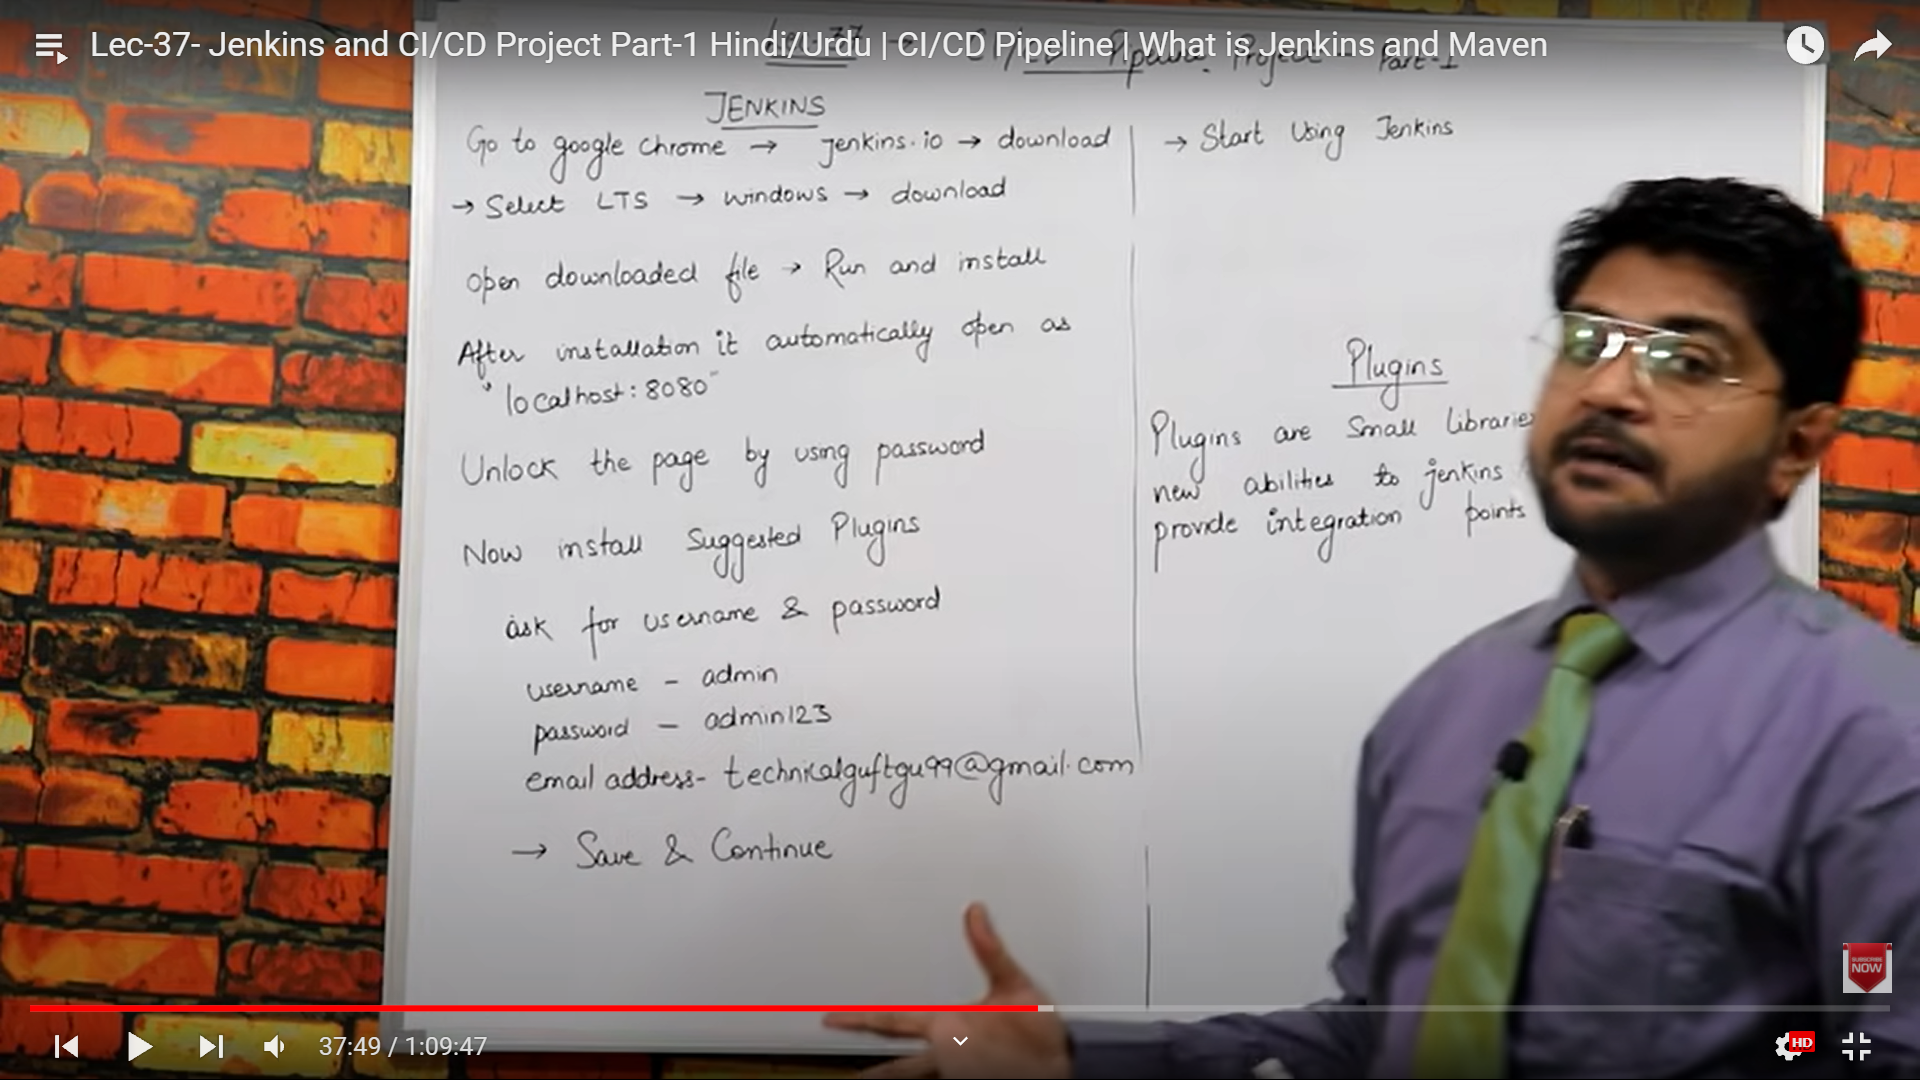 Lec-37- Jenkins and CI/CD Project Part-1 Hindi/Urdu | CI/CD Pipeline | What is Jenkins and Maven
JENKINS
Go to google chrome → jenkins.io → download
→ Select LTS → windows → download
open downloaded file → Run and install
After installation it automatically open as
"localhost: 8080"
Unlock the page by using password
Now install Suggested Plugins
ask for username & password
username - admin
password - admin123
email address- technicalguftgu99@gmail.com
→ Save & Continue
→ Start Using Jenkins
Plugins
Plugins are Small
new abilities to jenkins
provide integration points
SUBSCRIBE
NOW
37:49 / 1:09:47
HD